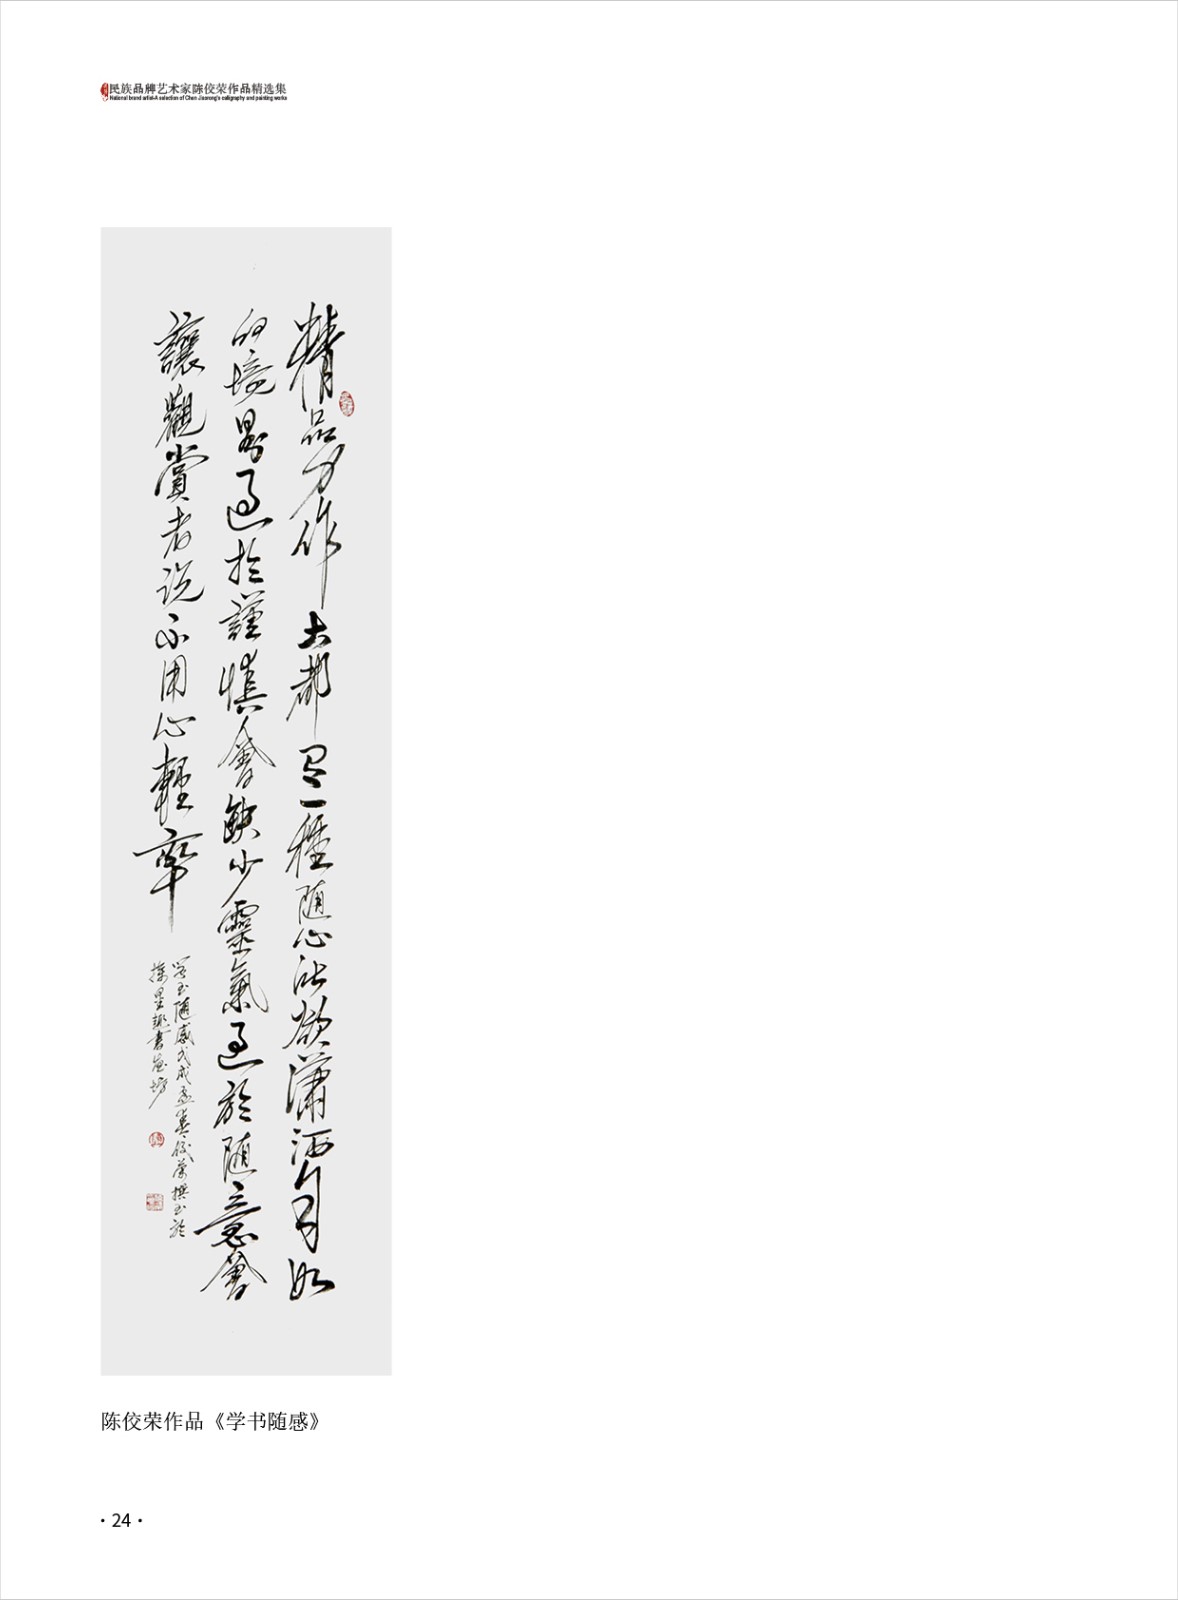 民族品牌艺术家陈佼荣作品精选集
National brand artist-A selection of Chen Jiaorong's calligraphy and painting works
精品力作大都是一種随心所欲潇洒自如
的境界過於謹慎會缺少靈氣過於随意會
讓觀賞者说不用心輕率
学书随感戊戌孟春佼荣撰书於
撷墨趣書画坊
陈佼荣作品《学书随感》
·24·